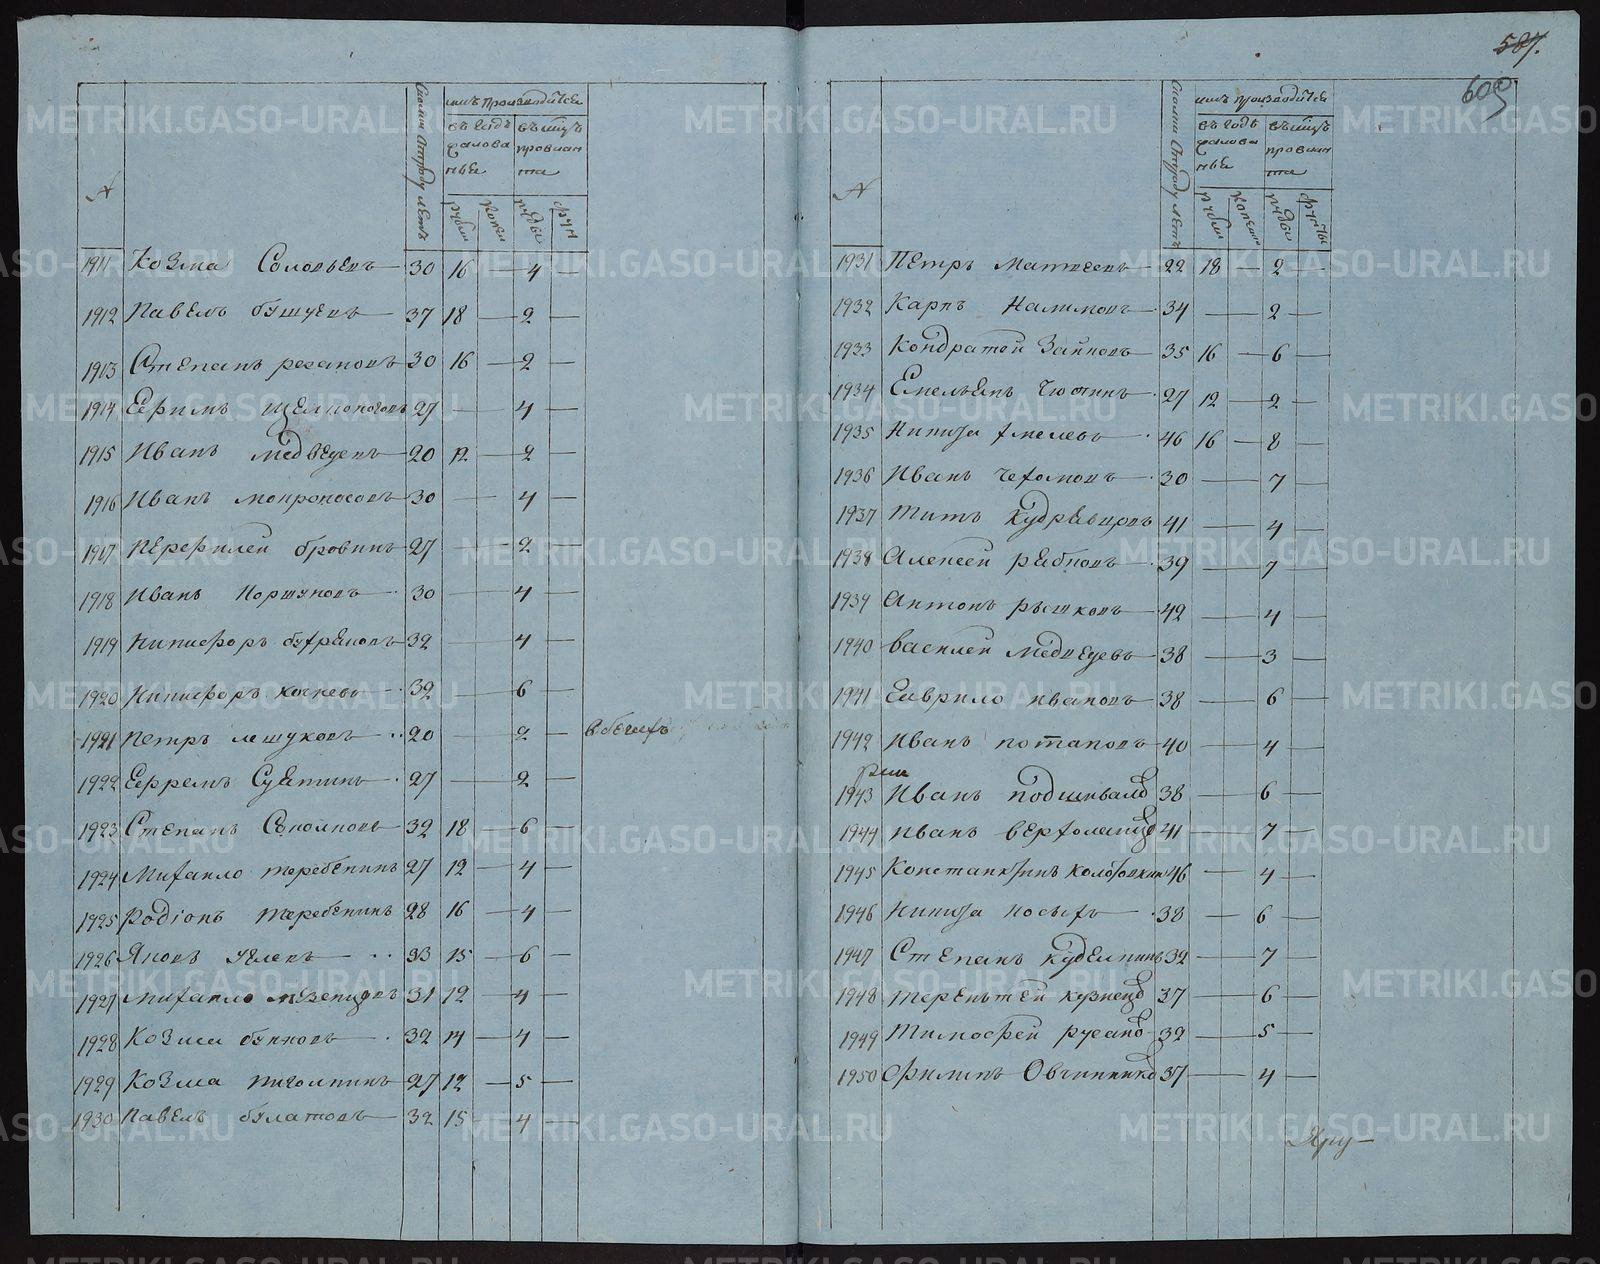 587.
600
№
Сколко отроду летъ
имъ производится
въ годъ жалованья
въ мцъ провианта
рубли
копеи
пуды
фун
1911 Козма Соловьевъ 30 16 — 4 —
1912 Павелъ бушуевъ 37 18 — 2 —
1913 Степанъ резановъ 30 16 — 2 —
1914 Ефимъ щелконоговъ 27 — 4 —
1915 Иванъ медведевъ 20 12 — 2 —
1916 Иванъ мокроносовъ 30 — 4 —
1917 Перфилей бровинъ 27 — 2 —
1918 Иванъ Коршуновъ 30 — 4 —
1919 Никифоръ бухряковъ 32 — 4 —
1920 Никифоръ качневъ 32 — 6 —
1921 Петръ лешуковъ 20 — 2 — в бегахъ
1922 Ефремъ Суетинъ 27 — 2 —
1923 Степанъ 32 18 — 6 —
1924 Михаило теребенинъ 27 12 — 4 —
1925 Родіонъ теребенинъ 28 16 — 4 —
1926 Яковъ 33 15 — 6 —
1927 Михаило мезенцовъ 31 12 — 4 —
1928 Козма буньковъ 32 14 — 4 —
1929 Козма ниголинъ 27 12 — 5 —
1930 Павелъ булатовъ 32 15 — 4 —
№
Сколко отроду летъ
имъ производится
въ годъ жалованья
въ мцъ провианта
рубли
копеи
пуды
фунты
1931 Петръ Матвеевъ 22 18 — 2 —
1932 Карпъ Налимовъ 34 — 2 —
1933 Кондратей Зайковъ 35 16 — 6 —
1934 Емельянъ Чютинъ 27 12 — 2 —
1935 Никита хмелевъ 46 16 — 8 —
1936 Иванъ чехомовъ 30 — 7 —
1937 Титъ Кудрявцовъ 41 — 4 —
1938 Алексей рябковъ 39 — 7 —
1939 Антонъ рышковъ 42 — 4 —
1940 Василей медведевъ 38 — 3 —
1941 Гаврило ивановъ 38 — 6 —
1942 Иванъ потаповъ 40 — 4 —
1943 Иванъ подшивало 38 — 6 —
1944 Иванъ верхоланце 41 — 7 —
1945 Констанктинъ колотовкин 46 — 4 —
1946 Никита косыхъ 38 — 6 —
1947 Степанъ куделкинъ 32 — 7 —
1948 Терентей кузнецо 37 — 6 —
1949 Тимофей русано 32 — 5 —
1950 Филипъ Овчинико 37 — 4 —